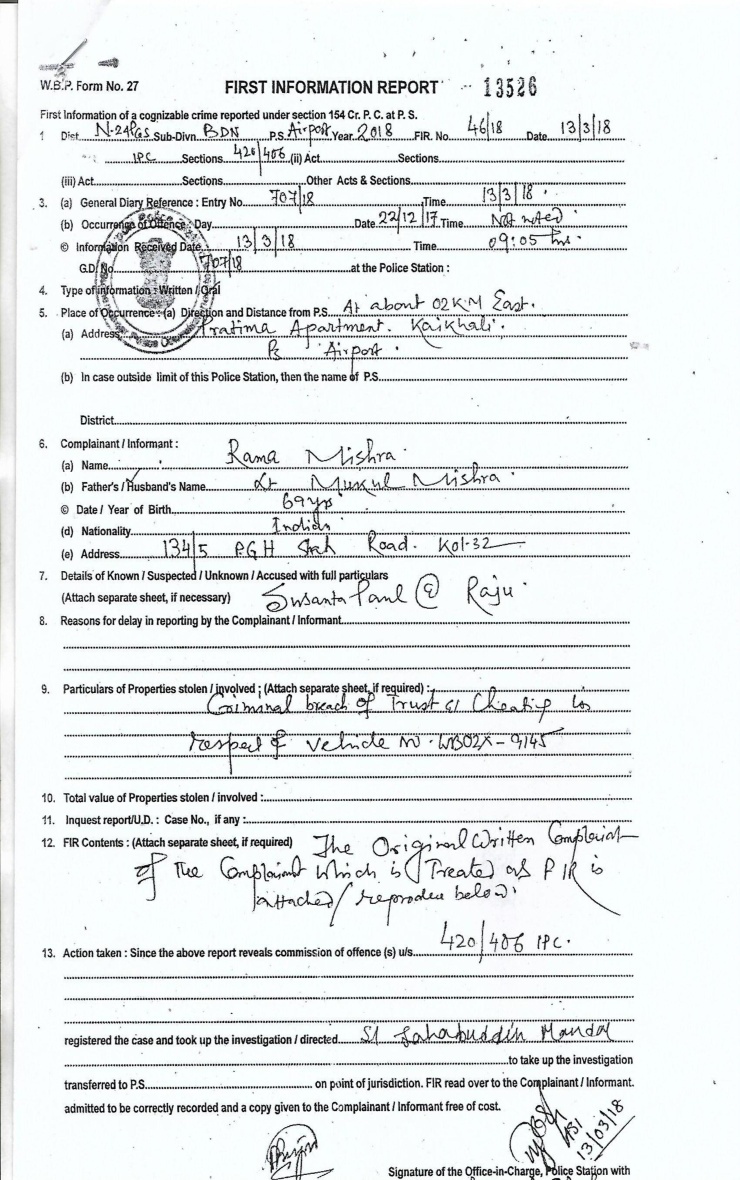 W.B.P. Form No. 27 FIRST INFORMATION REPORT 13526
First Information of a cognizable crime reported under section 154 Cr. P. C. at P. S.
1 Dist. N-24PGS Sub-Divn. BDN P.S. Airport Year 2018 FIR. No. 46/18 Date 13/3/18
IPC Sections 420/406 (ii) Act Sections
(iii) Act Sections Other Acts & Sections
3. (a) General Diary Reference : Entry No. 707/18 Time 13/3/18
(b) Occurrence of Offence : Day Date 22/12/17 Time Not noted
© Information Received Date 13/3/18 Time 09:05 hrs
G.D/ No. 707/18 at the Police Station :
4. Type of information : Written / Oral
5. Place of Occurrence : (a) Direction and Distance from P.S. At about 02 KM East.
(a) Address Pratima Apartment. Kaikhali.
Ps Airport.
(b) In case outside limit of this Police Station, then the name of P.S.
District
6. Complainant / Informant :
(a) Name Rama Mishra
(b) Father's / Husband's Name Lt Mukul Mishra
© Date / Year of Birth 69 yrs
(d) Nationality Indian
(e) Address 134/5 P.G.H Shah Road. Kol-32
7. Details of Known / Suspected / Unknown / Accused with full particulars
(Attach separate sheet, if necessary) Susanta Paul @ Raju
8. Reasons for delay in reporting by the Complainant / Informant
9. Particulars of Properties stolen / involved ; (Attach separate sheet, if required) :
Criminal breach of Trust & Cheating in
respect of vehicle no. WB02X-9145
10. Total value of Properties stolen / involved :
11. Inquest report/U.D. : Case No., if any :
12. FIR Contents : (Attach separate sheet, if required) The Original Written Complaint
of the Complaint which is Treated as FIR is
attached/ reproduce below.
13. Action taken : Since the above report reveals commission of offence (s) u/s. 420/406 IPC.
registered the case and took up the investigation / directed SI Sahabuddin Mondal
to take up the investigation
transferred to P.S. on point of jurisdiction. FIR read over to the Complainant / Informant.
admitted to be correctly recorded and a copy given to the Complainant / Informant free of cost.
ASI
13/03/18
Signature of the Office-in-Charge, Police Station with